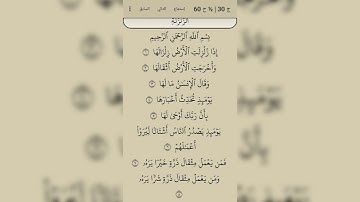 ج 30 | ½ ح 60 استماع | التالي السابق
الزلزلة
بِسْمِ ٱللَّهِ ٱلرَّحْمَٰنِ ٱلرَّحِيمِ
إِذَا زُلْزِلَتِ ٱلْأَرْضُ زِلْزَالَهَا ١
وَأَخْرَجَتِ ٱلْأَرْضُ أَثْقَالَهَا ٢
وَقَالَ ٱلْإِنسَٰنُ مَا لَهَا ٣
يَوْمَئِذٍ تُحَدِّثُ أَخْبَارَهَا ٤
بِأَنَّ رَبَّكَ أَوْحَىٰ لَهَا ٥
يَوْمَئِذٍ يَصْدُرُ ٱلنَّاسُ أَشْتَاتًا لِّيُرَوْا۟
أَعْمَٰلَهُمْ ٦
فَمَن يَعْمَلْ مِثْقَالَ ذَرَّةٍ خَيْرًا يَرَهُۥ ٧
وَمَن يَعْمَلْ مِثْقَالَ ذَرَّةٍ شَرًّا يَرَهُۥ
٨